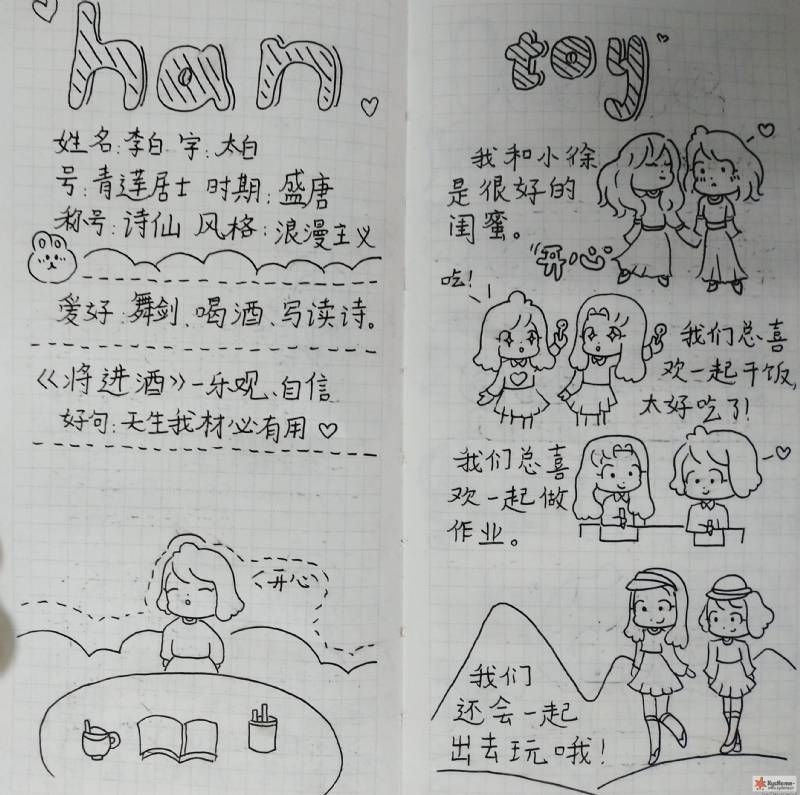 han
姓名:李白 字:太白
号:青莲居士 时期:盛唐
称号:诗仙 风格:浪漫主义
爱好:舞剑、喝酒、写读诗。
《将进酒》—乐观、自信
好句:天生我材必有用♡
开心
toy
我和小徐
是很好的
闺蜜。
"开心
吃!
我们总喜
欢一起干饭,
太好吃了!
我们总喜
欢一起做
作业。
我们
还会一起
出去玩哦!